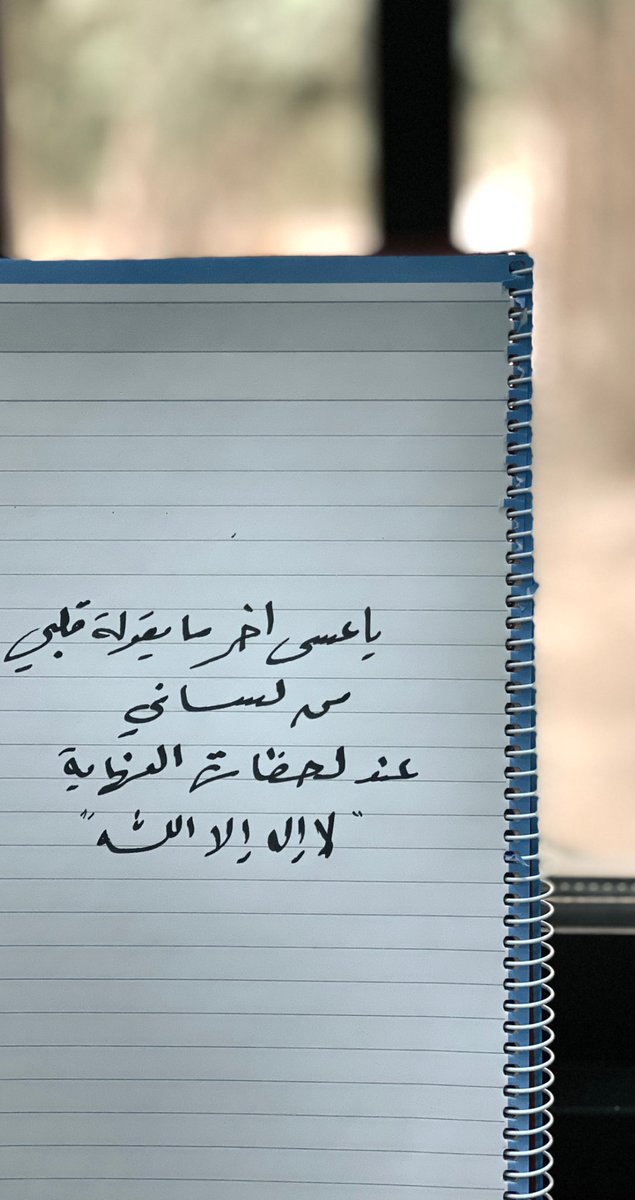 ياعسى اخر ما يقولة قلبي
من لساني
عند لحظات النهاية
"لا إله إلا الله"